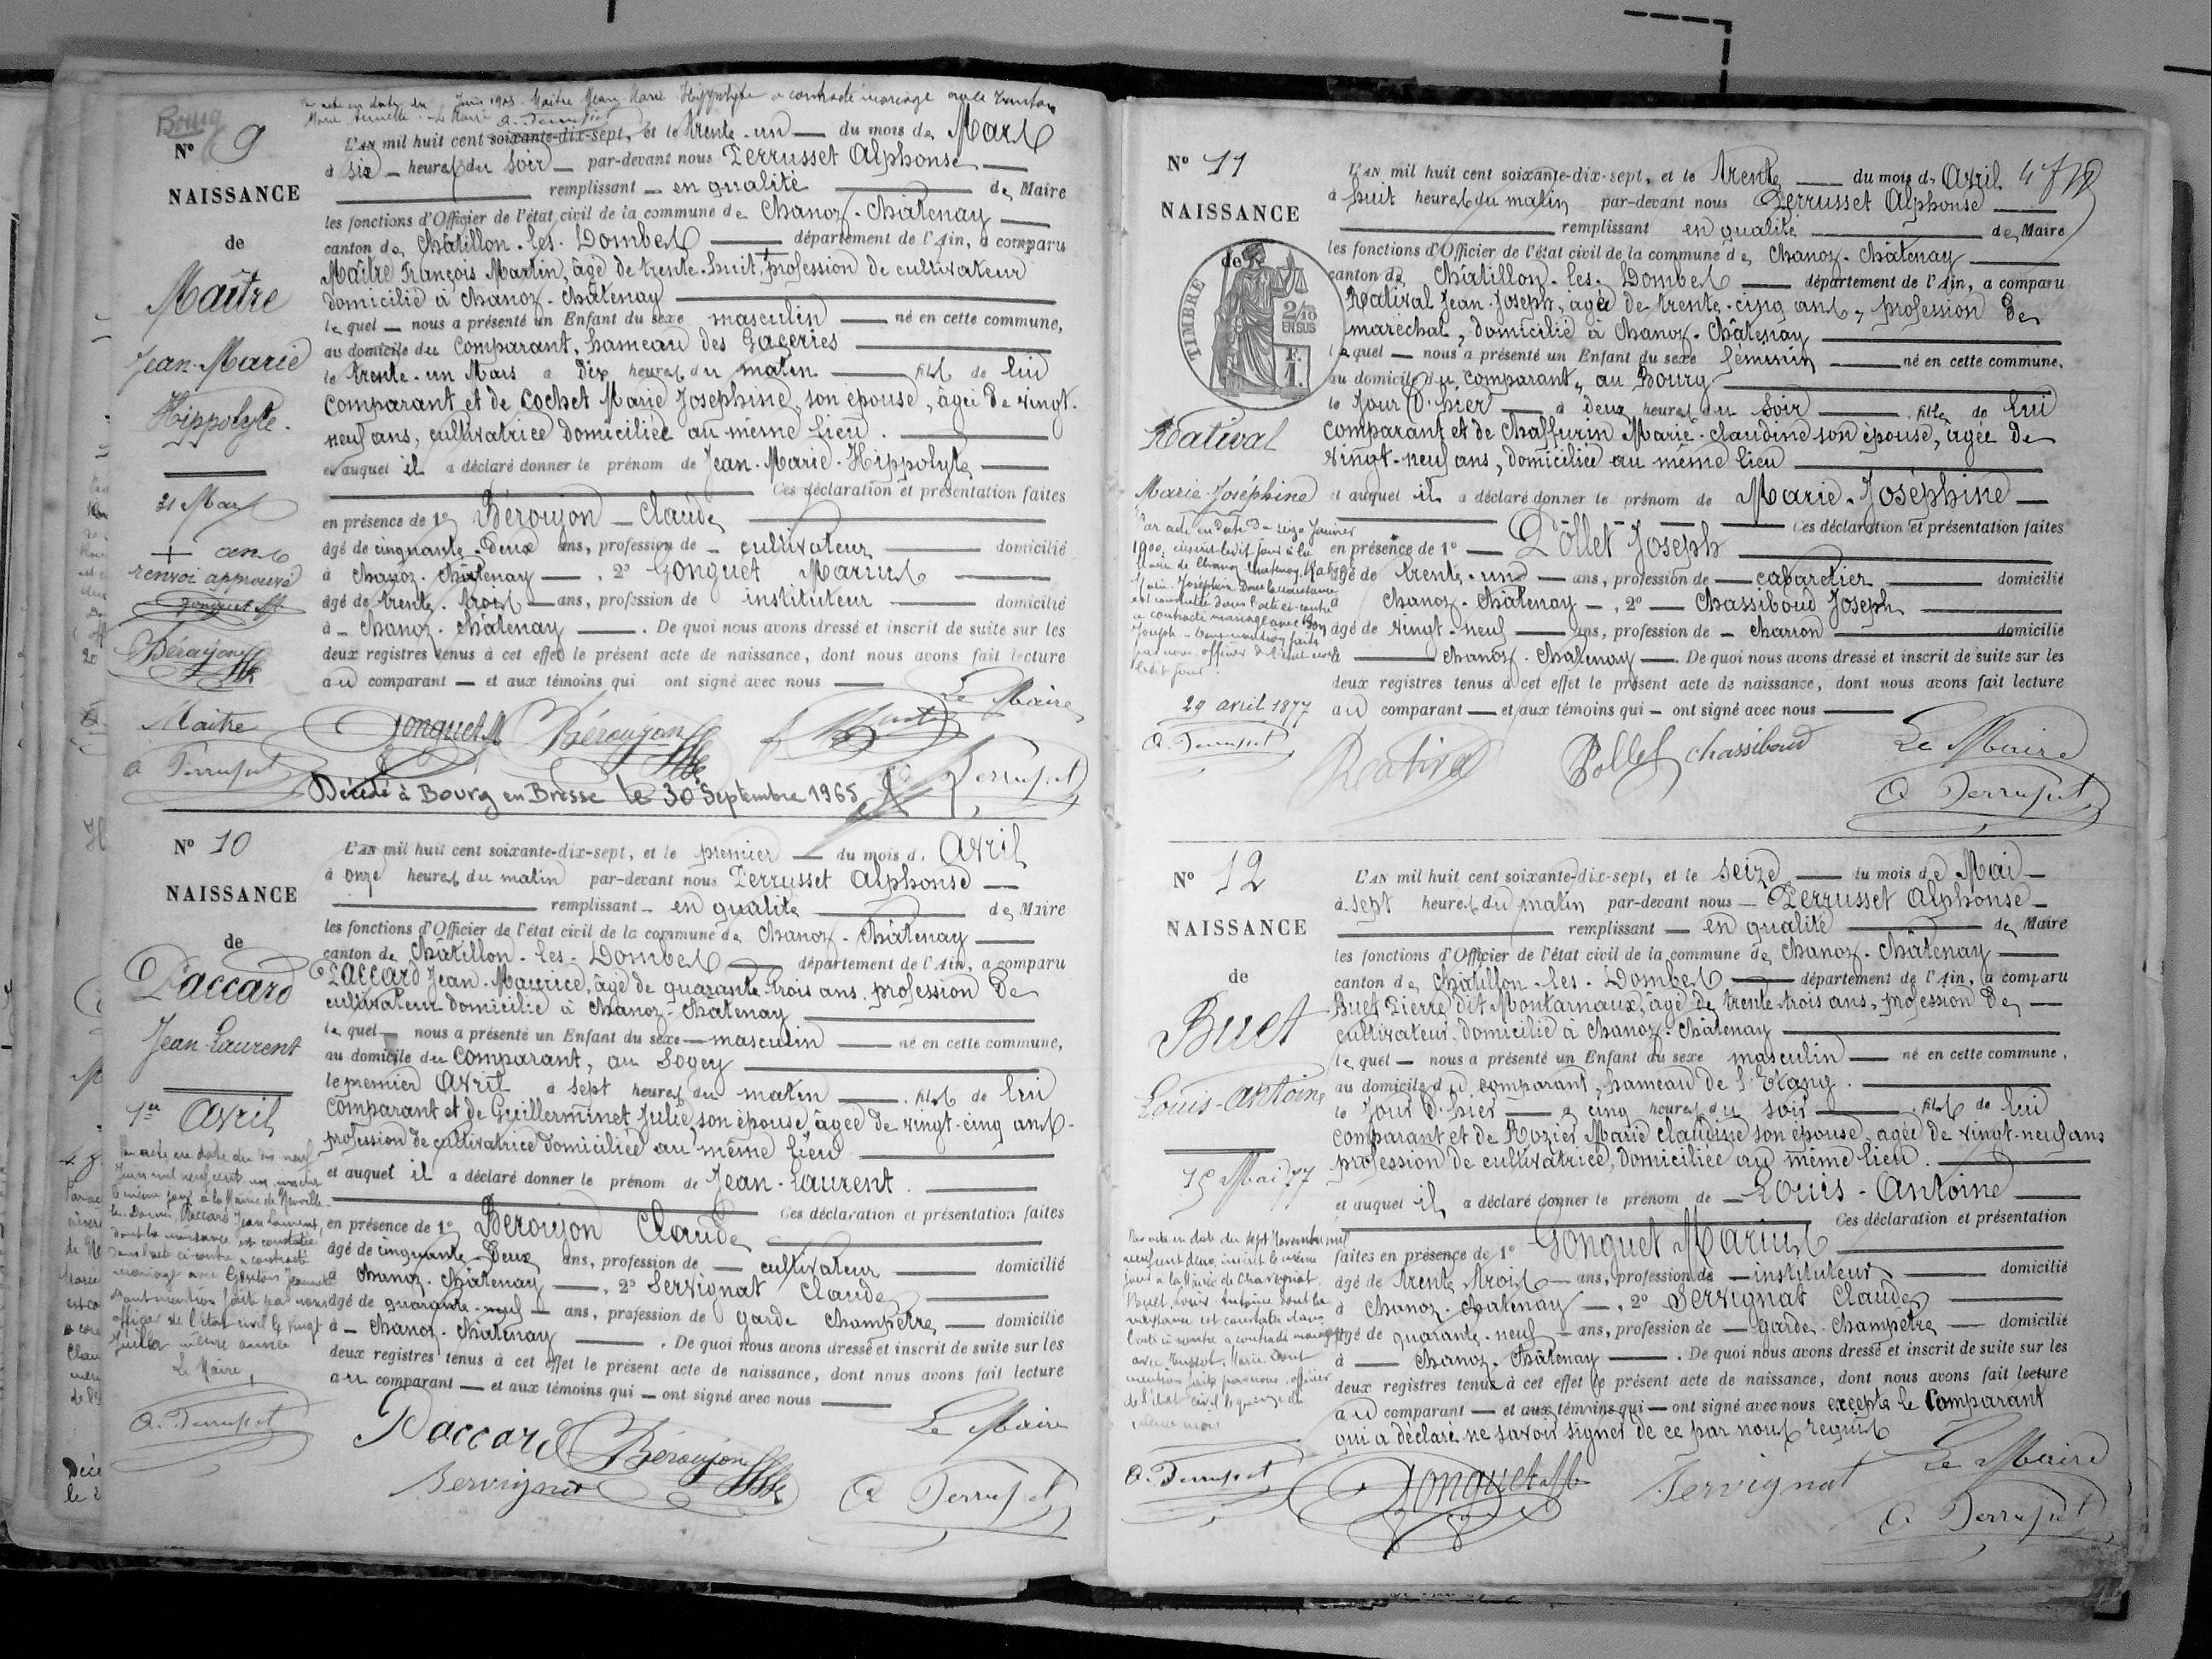 Bourg
Nº 9
NAISSANCE
de
Maître
Jean-Marie
Hippolyte.
31 Mars
+ ans
renvoi approuvé
Gonguet M
Béroujon
Maitre
A Perrusset
Jean Marie Hippolyte a contracté mariage avec
Marie Le Maire A. Perrusset
L'AN mil huit cent soixante-dix-sept, et le trente-un — du mois de Mars
à six — heures du soir — par-devant nous Perrusset Alphonse —
remplissant — en qualité — de Maire
les fonctions d'Officier de l'état civil de la commune de Chanoz-Châtenay —
canton de Châtillon-les-Dombes — département de l'Ain, a comparu
Maître François Martin, âgé de trente-huit + profession de cultivateur
domicilié à Chanoz-Châtenay —
lequel — nous a présenté un Enfant du sexe masculin — né en cette commune,
au domicile du Comparant, hameau des Gageries —
le trente-un Mars à dix heures du matin — fils de lui
comparant et de Cochet Marie Josephine, son épouse, âgée de vingt-
neuf ans, cultivatrice domiciliée au même lieu. —
et auquel il a déclaré donner le prénom de Jean-Marie-Hippolyte —
Ces déclaration et présentation faites
en présence de 1º Béroujon — Claude —
âgé de cinquante-deux ans, profession de — cultivateur — domicilié
à Chanoz-Châtenay —, 2º Gonguet Marius —
âgé de trente-trois — ans, profession de instituteur — domicilié
à — Chanoz-Châtenay —. De quoi nous avons dressé et inscrit de suite sur les
deux registres tenus à cet effet le présent acte de naissance, dont nous avons fait lecture
au comparant — et aux témoins qui ont signé avec nous —
Le Maire
Gonguet M Béroujon Maitre
A Perrusset
Décédé à Bourg en Bresse le 30 Septembre 1965
Nº 10
NAISSANCE
de
Paccard
Jean-Laurent
1er Avril
Par acte en date du dix neuf
Juin mil neuf cent un inscrit
le même jour à la Mairie de Neuville-
les-Dames, Paccard Jean Laurent,
dont la naissance est constatée
dans l'acte ci-contre a contracté
mariage avec Jeanne
Dont mention faite par nous
officier de l'état civil le vingt
Juillet même année
Le Maire,
A. Perrusset
L'AN mil huit cent soixante-dix-sept, et le premier — du mois d' Avril
à onze heures du matin par-devant nous Perrusset Alphonse —
remplissant — en qualité — de Maire
les fonctions d'Officier de l'état civil de la commune de Chanoz-Châtenay —
canton de Châtillon-les-Dombes — département de l'Ain, a comparu
Paccard Jean-Maurice, âgé de quarante-trois ans, profession de
cultivateur domicilié à Chanoz-Châtenay —
lequel — nous a présenté un Enfant du sexe — masculin — né en cette commune,
au domicile du Comparant, au Sogey —
le premier Avril à sept heures du matin —. fils de lui
comparant et de Guillerminet Julie, son épouse, âgée de vingt-cinq ans-
profession de cultivatrice domiciliée au même lieu —
et auquel il a déclaré donner le prénom de Jean-Laurent. —
Ces déclaration et présentation faites
en présence de 1º Béroujon Claude —
âgé de cinquante-deux ans, profession de — cultivateur — domicilié
à Chanoz-Châtenay —, 2º Servignat Claude —
âgé de quarante-neuf — ans, profession de garde champêtre — domicilié
à — Chanoz-Châtenay —. De quoi nous avons dressé et inscrit de suite sur les
deux registres tenus à cet effet le présent acte de naissance, dont nous avons fait lecture
au comparant — et aux témoins qui — ont signé avec nous —
Le Maire
Paccard Béroujon
Servignat A Perrusset
Nº 11
NAISSANCE
de
TIMBRE
2/10
EN SUS
F.
1.
Rativat
Marie-Joséphine
Par acte en date du seize Janvier
1900, inscrit ledit jour à la
Mairie de Chanoz-Chatenay, Rativat
Marie-Joséphine Dont la naissance
est constatée dans l'acte ci-contre
a contracté mariage avec
Joseph. Dont mention faite
par nous officier de l'état civil
ledit jour.
29 avril 1877
A. Perrusset
L'AN mil huit cent soixante-dix-sept, et le trente — du mois d' Avril
à huit heures du matin par-devant nous Perrusset Alphonse —
remplissant en qualité — de Maire
les fonctions d'Officier de l'état civil de la commune de Chanoz-Châtenay —
canton de Châtillon-les-Dombes — département de l'Ain, a comparu
Rativat Jean-Joseph, âgé de trente-cinq ans, profession de
maréchal, domicilié à Chanoz-Châtenay —
lequel — nous a présenté un Enfant du sexe féminin — né en cette commune,
au domicile du comparant, au Bourg —
le jour d'hier — à deux heures du soir — fille de lui
comparant et de Chaffurin Marie-Claudine son épouse, âgée de
vingt-neuf ans, domiciliée au même lieu —
et auquel il a déclaré donner le prénom de Marie-Joséphine —
Ces déclaration et présentation faites
en présence de 1º — Pollet Joseph —
âgé de trente-un — ans, profession de — cabaretier — domicilié
à Chanoz-Châtenay —, 2º — Chassiboud Joseph —
âgé de vingt-neuf — ans, profession de — charron — domicilié
à — Chanoz-Châtenay —. De quoi nous avons dressé et inscrit de suite sur les
deux registres tenus à cet effet le présent acte de naissance, dont nous avons fait lecture
au comparant — et aux témoins qui — ont signé avec nous —
Rativat Pollet Chassiboud Le Maire
A Perrusset
Nº 12
NAISSANCE
de
Buet
Louis-Antoine
15 Mai 77
Par acte en date du sept Novembre mil
neuf cent deux, inscrit le même
jour à la Mairie de Chaveyriat,
Buet, Louis Antoine dont la
naissance est constatée dans
l'acte ci-contre a contracté mariage
avec Marie. Dont
mention faite par nous officier
de l'état civil le quinze du
même mois
A. Perrusset
L'AN mil huit cent soixante-dix-sept, et le seize — du mois de Mai —
à sept heures du matin par-devant nous — Perrusset Alphonse —
remplissant — en qualité — de Maire
les fonctions d'Officier de l'état civil de la commune de Chanoz-Châtenay —
canton de Châtillon-les-Dombes — département de l'Ain, a comparu
Buet Pierre dit Montarnaux, âgé de trente-trois ans, profession de —
cultivateur, domicilié à Chanoz-Châtenay —
lequel — nous a présenté un Enfant du sexe masculin — né en cette commune,
au domicile du comparant, hameau de l'Etang. —
le jour d'hier — à cinq heures du soir —. fils de lui
comparant et de Rozier Marie Claudine son épouse, âgée de vingt-neuf ans
profession de cultivatrice, domiciliée au même lieu. —
et auquel il a déclaré donner le prénom de — Louis-Antoine —
Ces déclaration et présentation
faites en présence de 1º Gonguet Marius —
âgé de trente trois — ans, profession de — instituteur — domicilié
à Chanoz-Châtenay —, 2º Servignat Claude —
âgé de quarante-neuf — ans, profession de — garde-champêtre — domicilié
à — Chanoz-Châtenay —. De quoi nous avons dressé et inscrit de suite sur les
deux registres tenus à cet effet le présent acte de naissance, dont nous avons fait lecture
au comparant — et aux témoins qui — ont signé avec nous excepté le Comparant
qui a déclaré ne savoir signer de ce par nous requis
Gonguet M Servignat Le Maire
A Perrusset